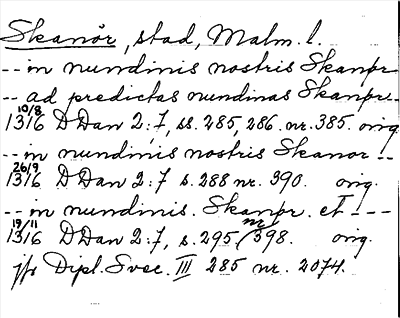 Skanör, stad, Malm. l.
-- in nundinis nostris Skanør
-- ad predictas nundinas Skanør--
10/8
1316 D Dan 2:7, ss. 285, 286. nr. 385. orig.
-- in nundinis nostris Skanor --
26/9
1316 D Dan 2:7 s. 288 nr. 390. orig.
-- in nundinis. Skanør. et ---
19/11
1316 D Dan 2:7, s. 295 / nr 398. orig.
jfr Dipl. Svec. III 285 nr. 2074.